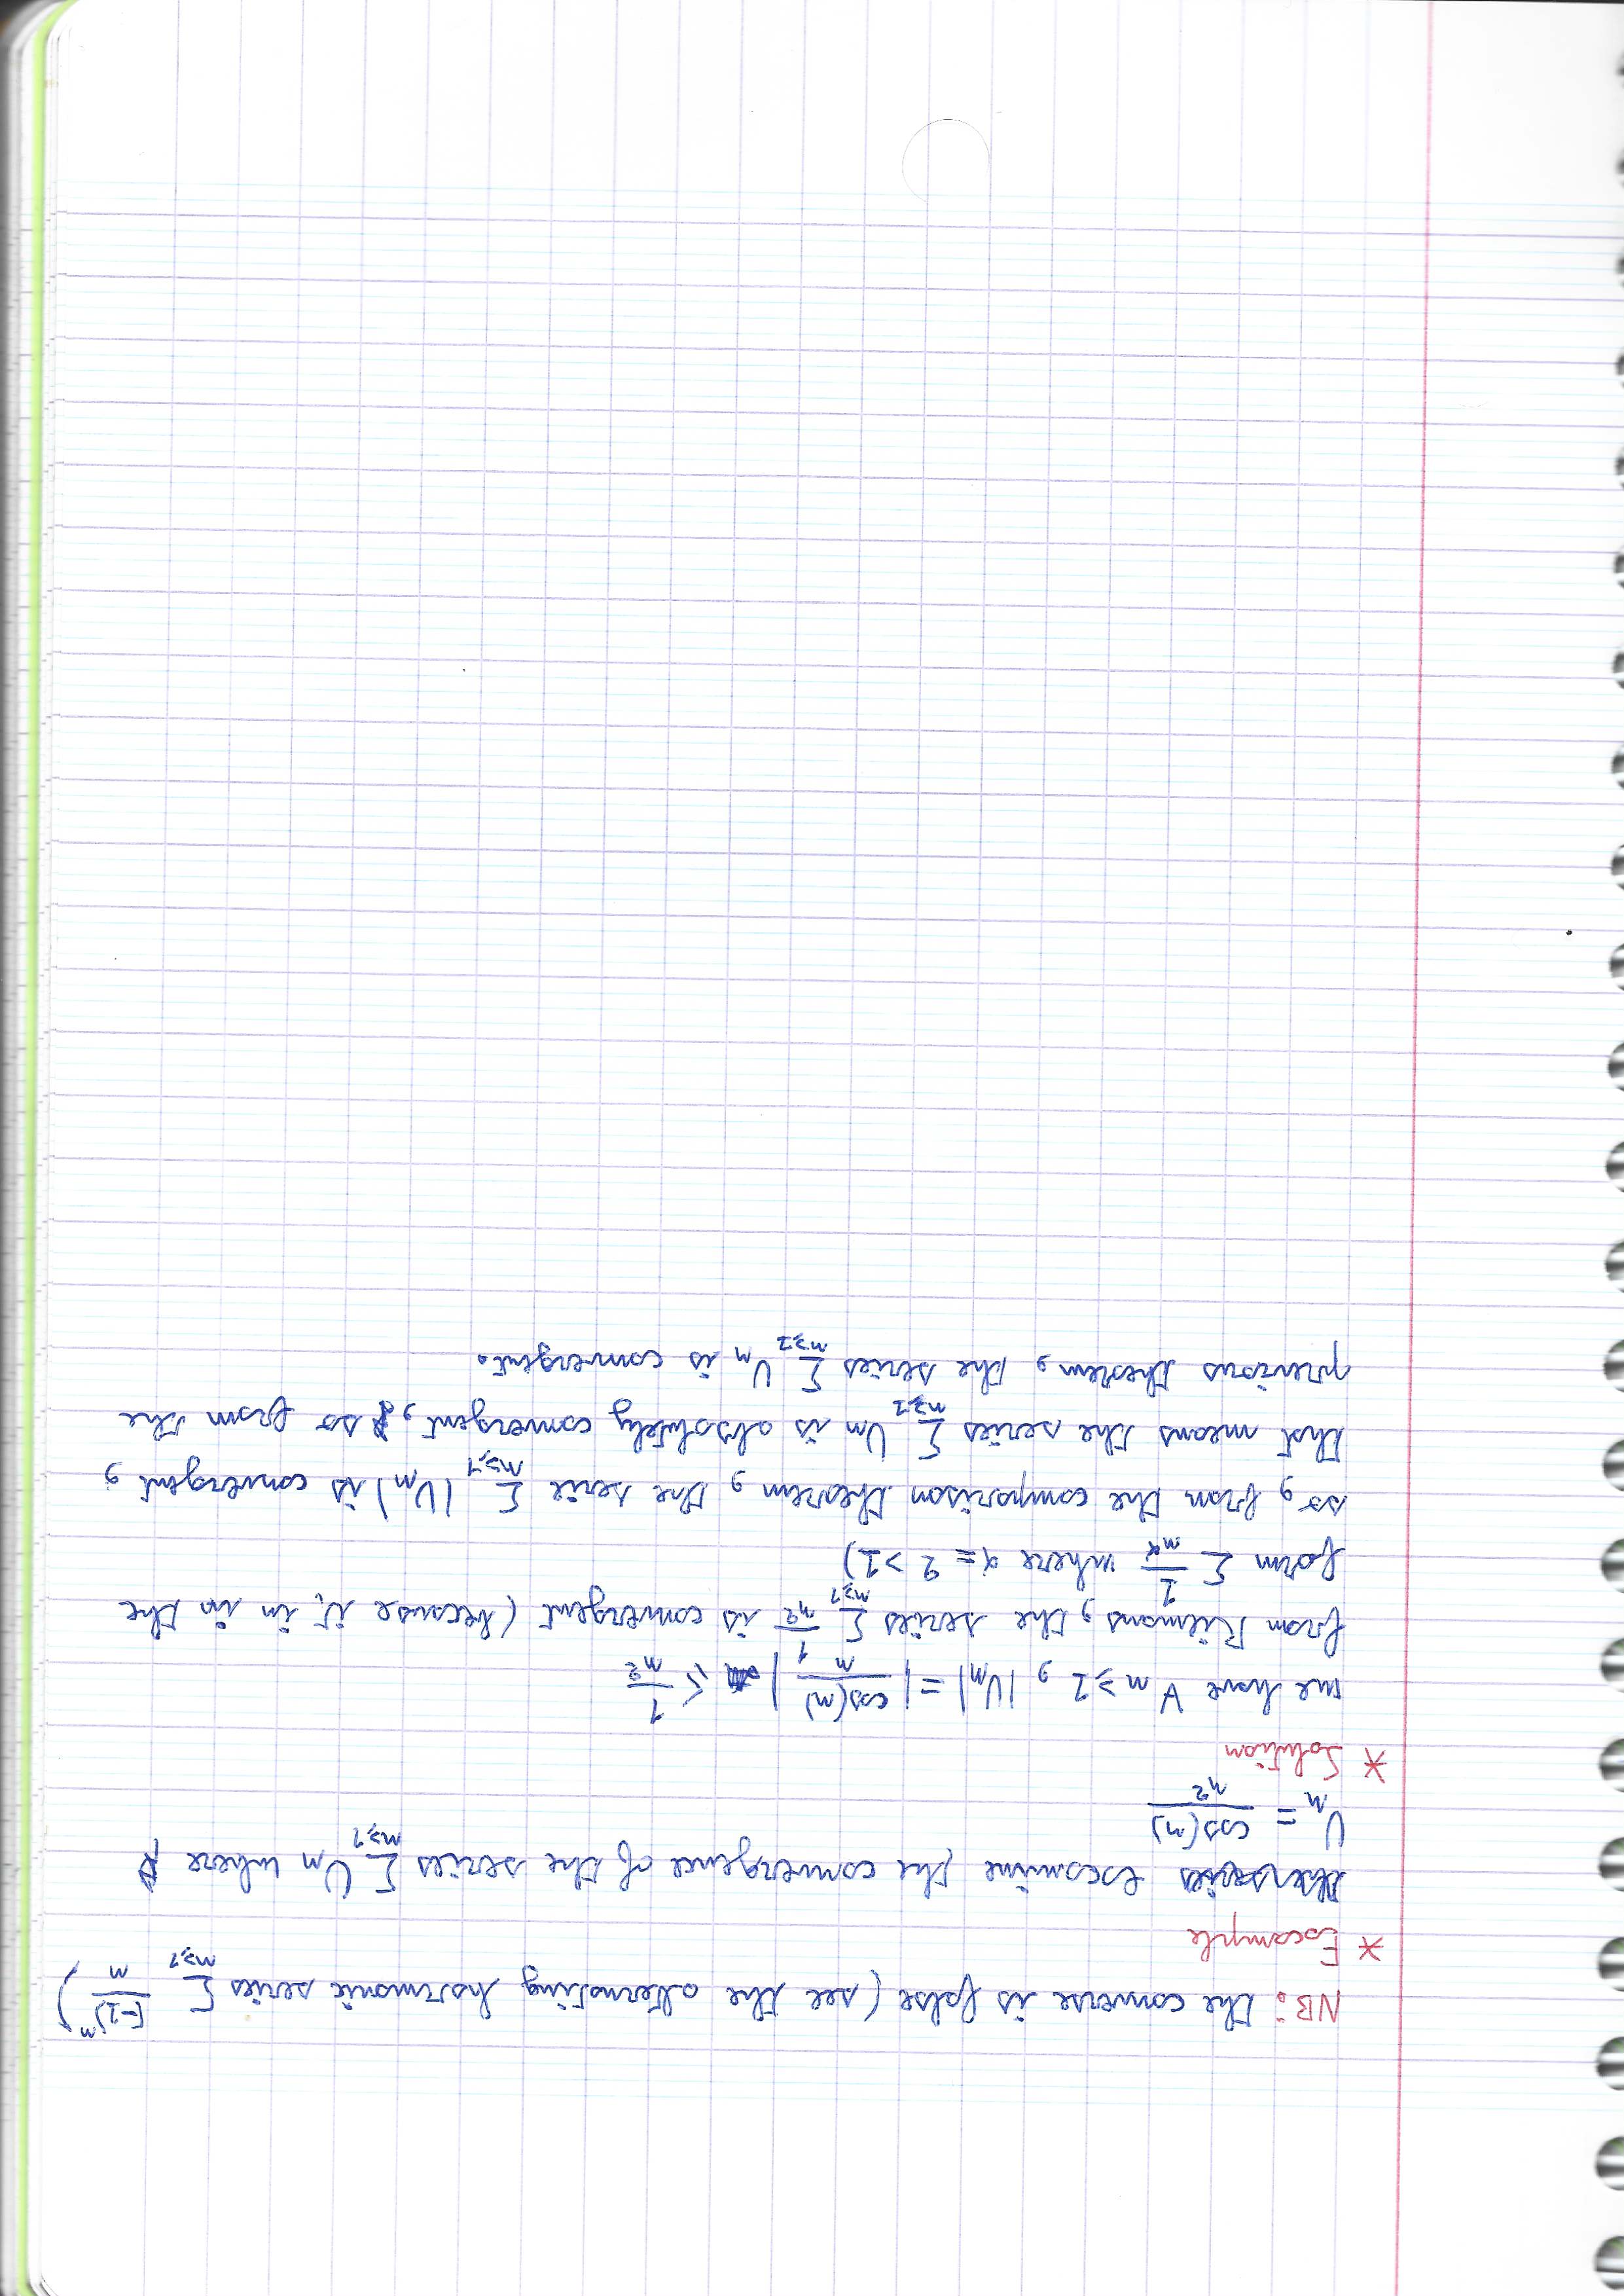 NB: the converse is false (see the alternating harmonic series Σ_{n≥1} (-1)^n/n)
* Example
examine the convergence of the series Σ_{n≥1} Un where
Un = cos(n)/n²
* Solution
we have ∀ n ≥ 1 , |Un| = |cos(n)/n| ≤ 1/n²
from Riemans, the series Σ_{n≥1} 1/n² is convergent (because it, in in the
form Σ 1/n^α where α = 2 > 1)
so, from the comparison theorem, the serie Σ_{n≥1} |Un| is convergent,
that means the series Σ_{n≥1} Un is absolutely convergent, so from the
previous theorem, the series Σ_{n≥1} Un is convergent.